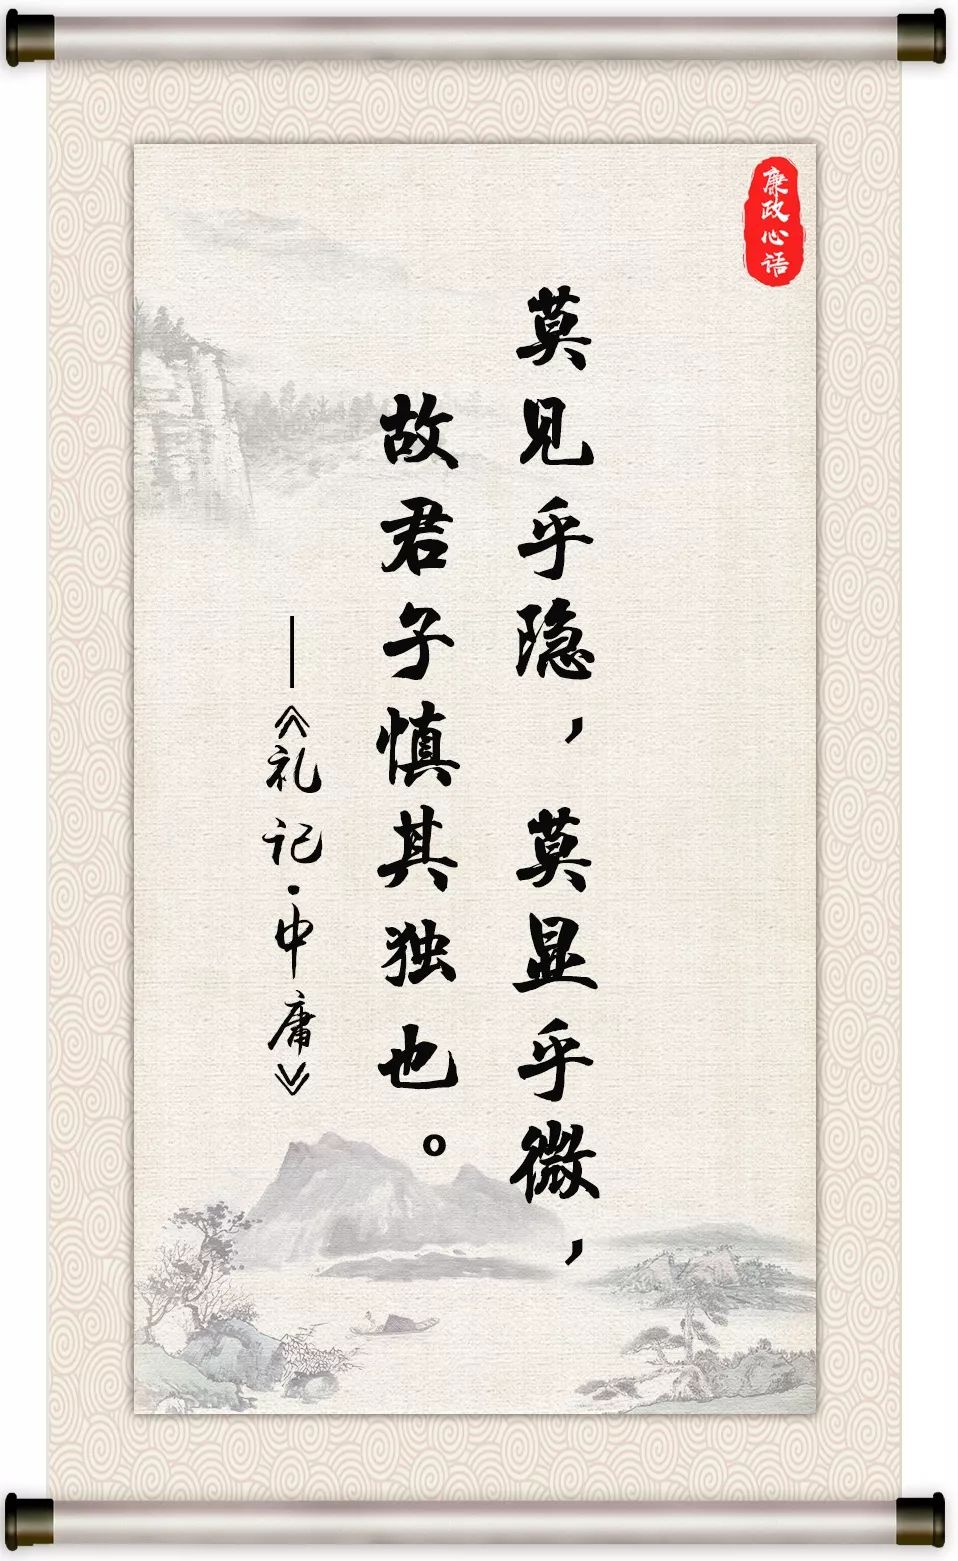 廉政心语
莫见乎隐，莫显乎微，
故君子慎其独也。
—《礼记·中庸》